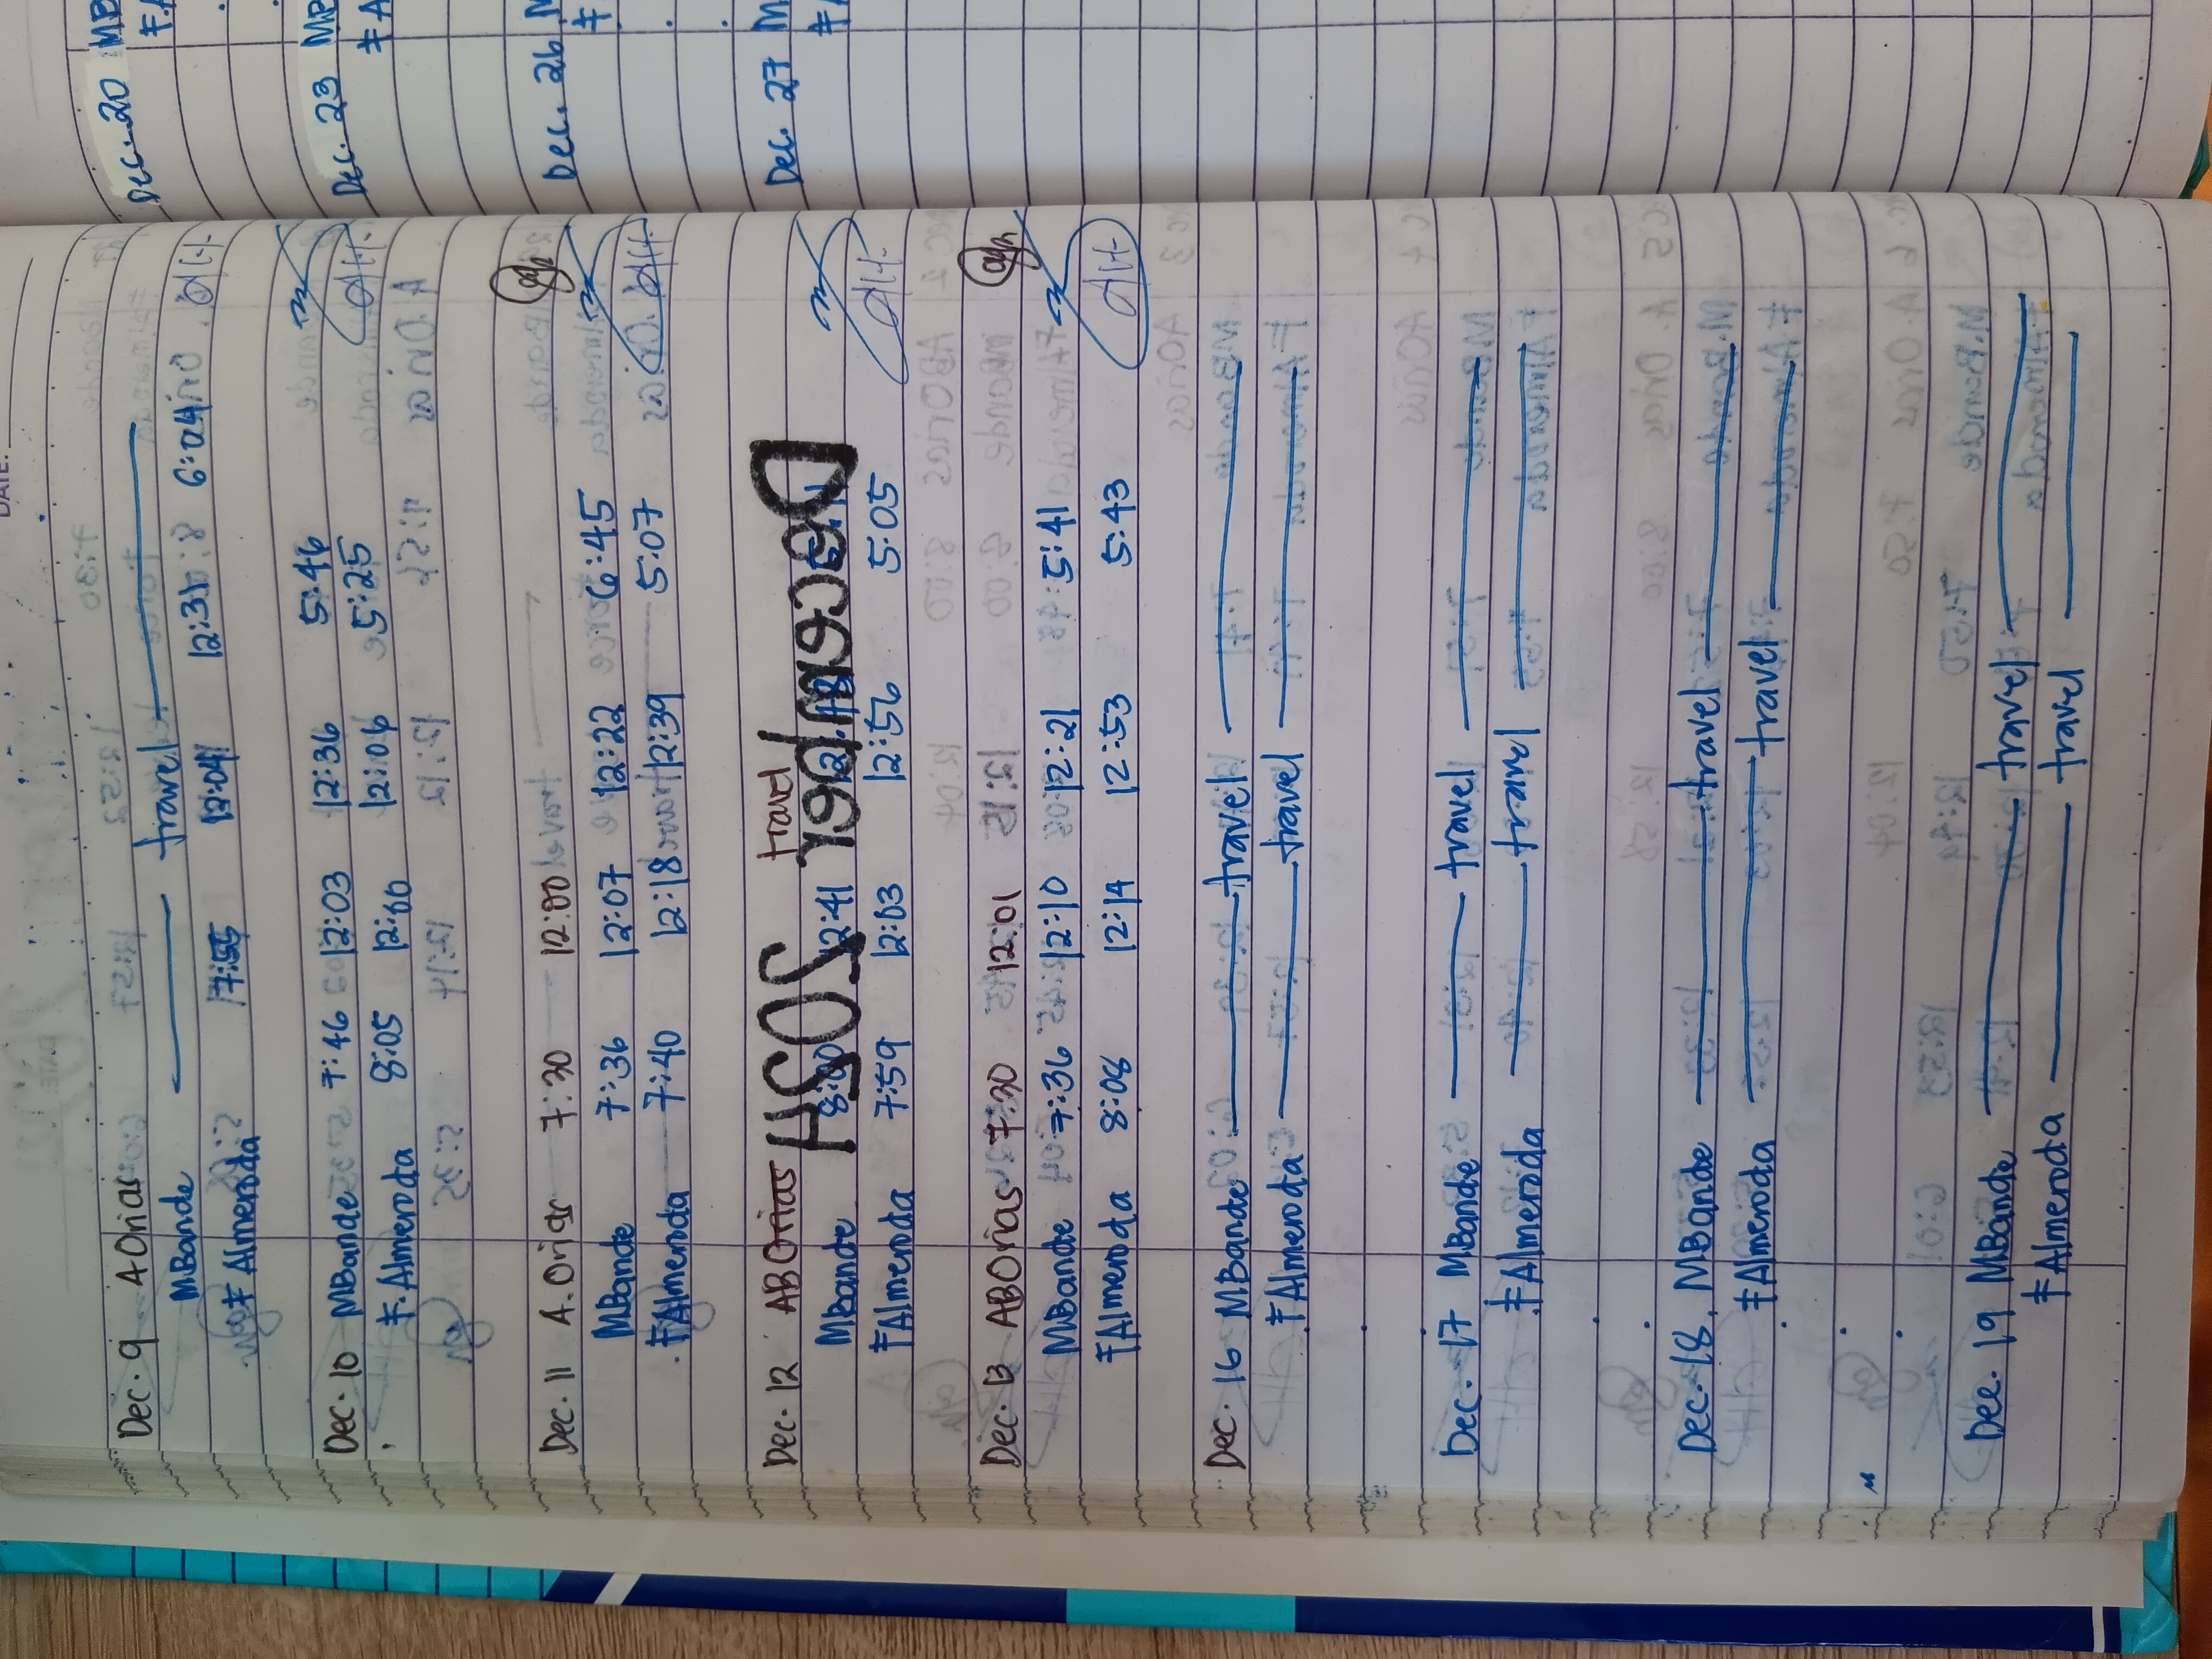 DATE:
Dec. 9 A Orias
MBande travel
F Almeroda 7:55 12:04 12:31 6:04 AH
Dec. 10 MBande 7:46 12:03 12:36 5:46
F. Almeroda 8:05 12:00 12:06 5:25 AH
Dec. 11 A. Orias 7:30 12:00
MBande 7:36 12:07 12:22 6:45
F Almeroda 7:40 12:18 12:39 5:07 AH
Dec. 12 ABOrias travel
HSOS ꓤƎꓭ/mɘɔɘᗡ
MBande 8:00 12:41
F Almeroda 7:59 12:03 12:56 5:05 AH
Dec. 13 ABOrias 7:30 12:01
MBande 7:36 12:10 12:21 5:41
F Almeroda 8:08 12:14 12:53 5:43 AH
Dec. 16 MBande travel
F Almeroda travel
Dec. 17 MBande travel
F Almeroda travel
Dec. 18 MBande travel
F Almeroda travel
Dec. 19 MBande travel
F Almeroda travel
Dec. 20 MB
F. A
Dec. 23 MB
F A
Dec. 26 M
F
Dec. 27 M
F A